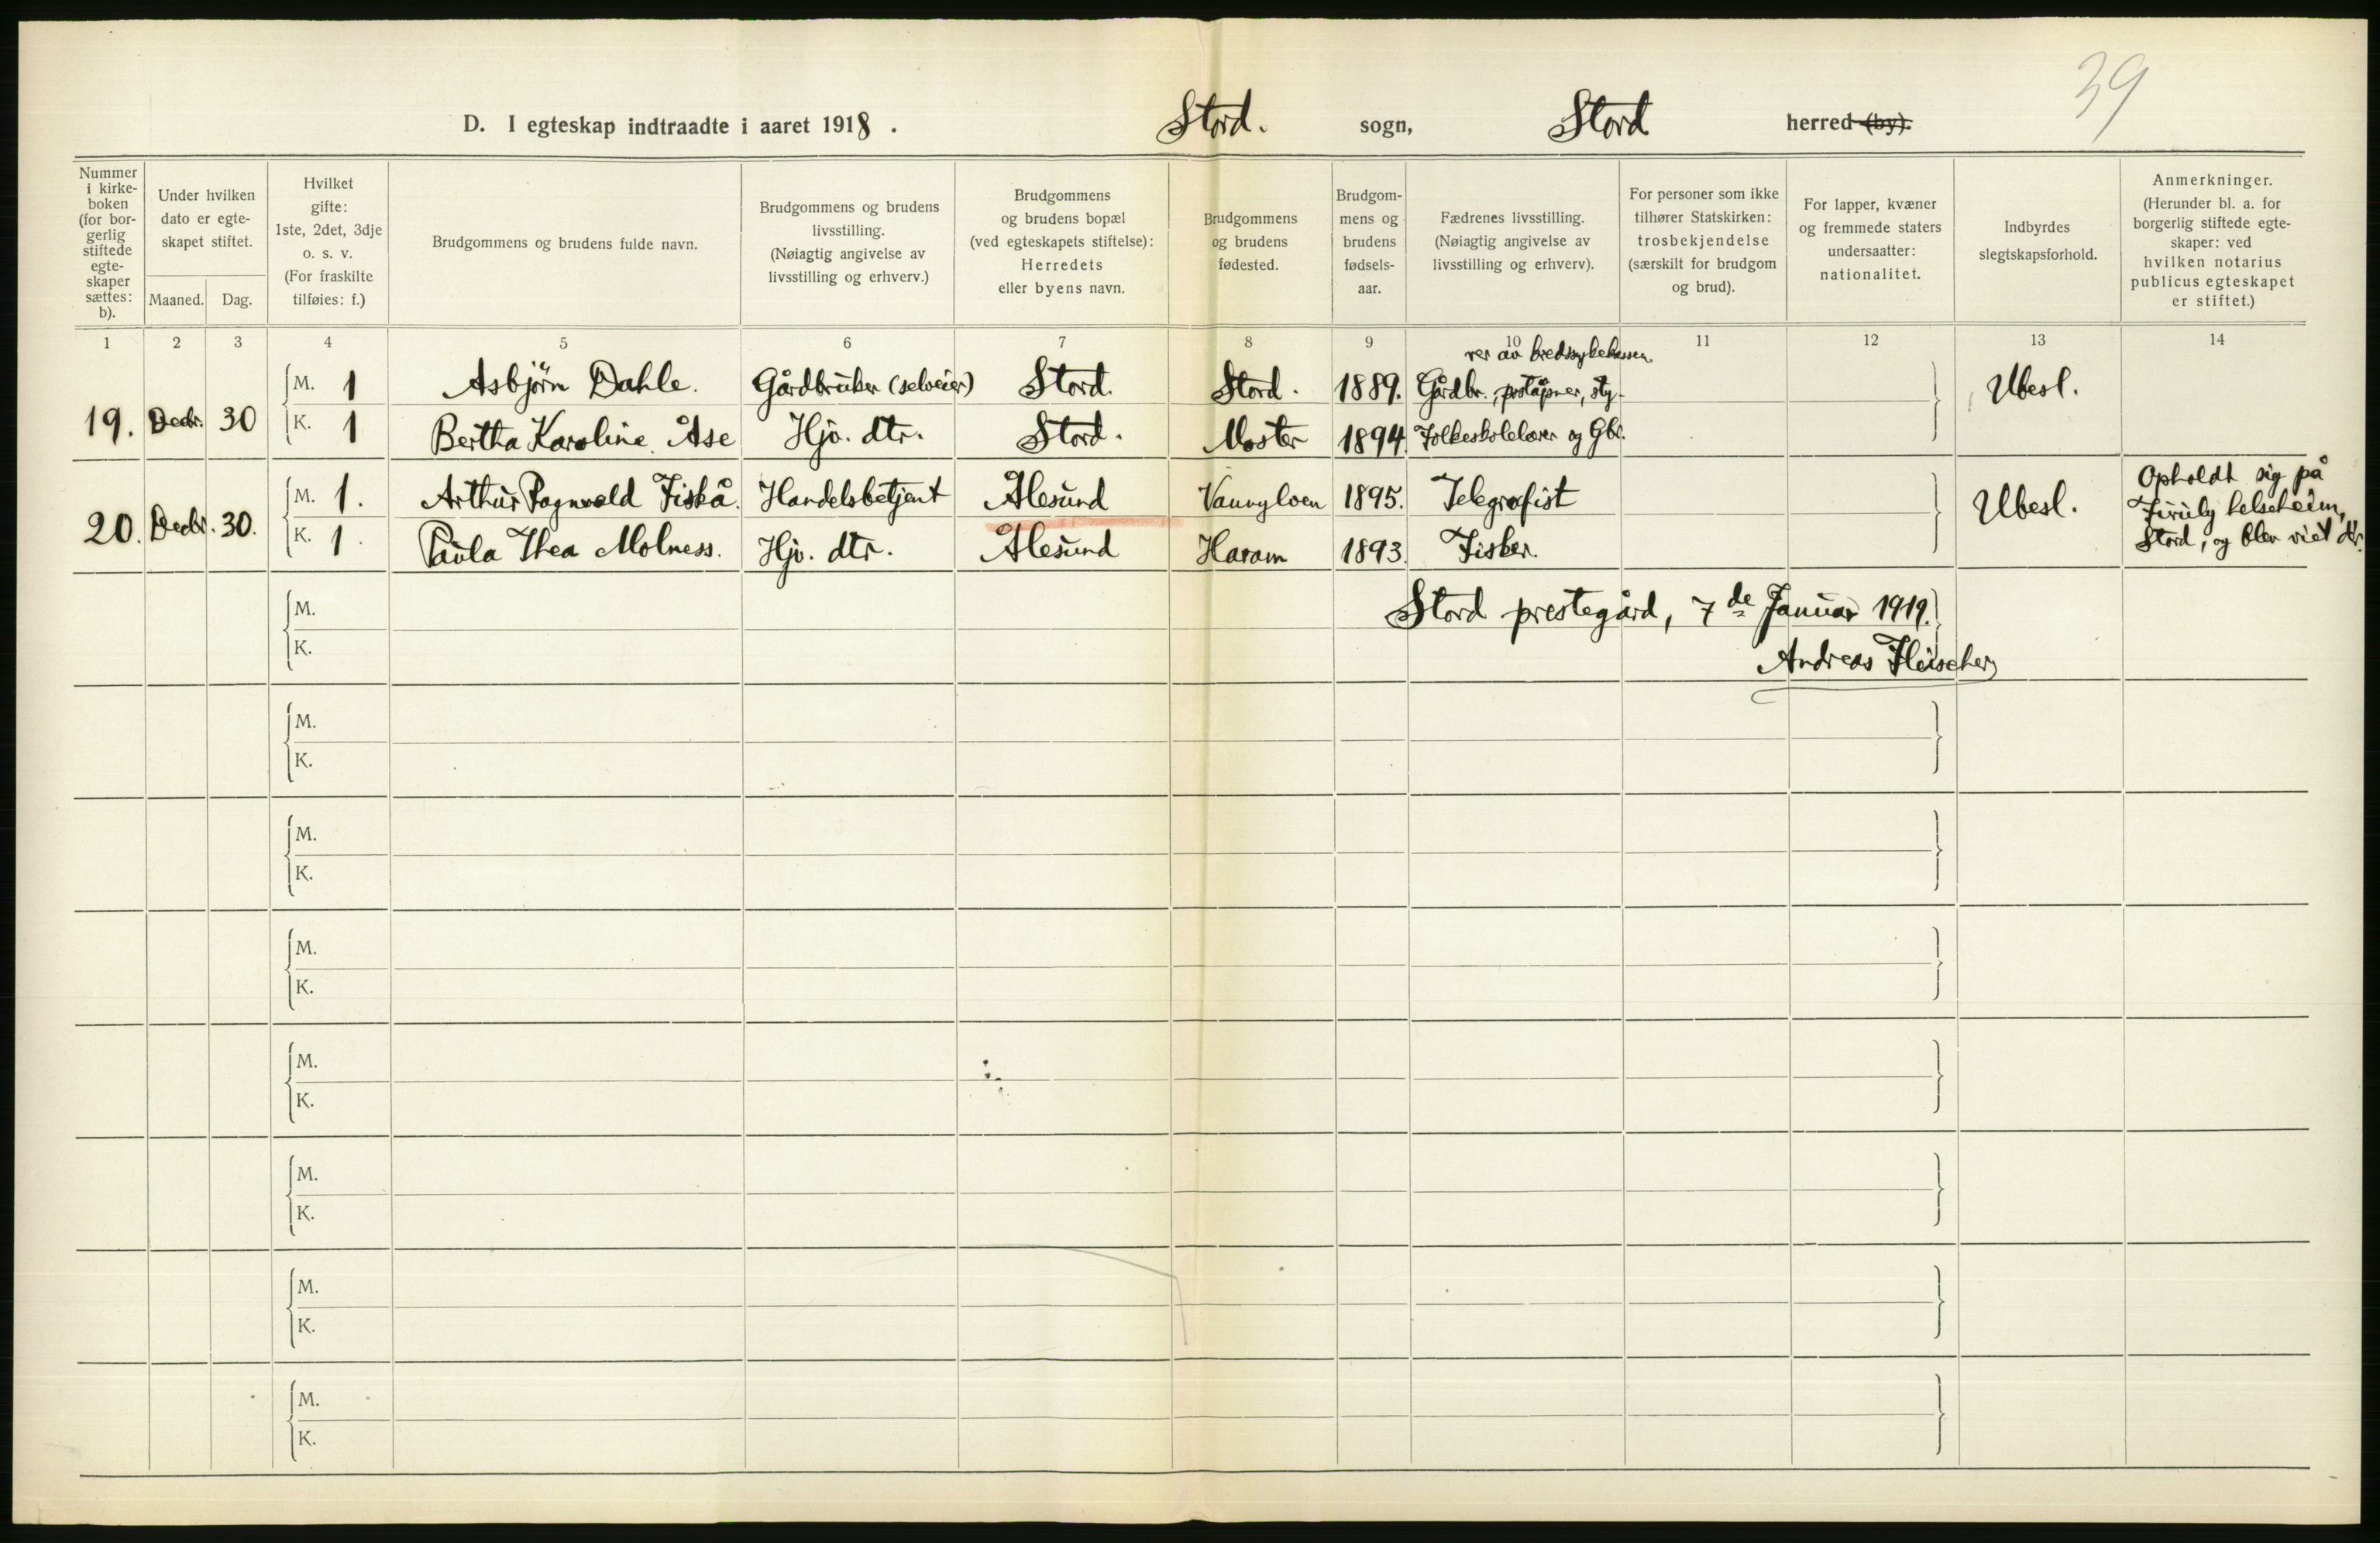 39
D. I egteskap indtraadte i aaret 1918. Stord. sogn, Stord herred (by).
Nummer i kirkeboken (for borgerlig stiftede egteskaper sættes: b).
Under hvilken dato er egteskapet stiftet.
Maaned. Dag.
Hvilket gifte: 1ste, 2det, 3dje o. s. v. (For fraskilte tilføies: f.)
Brudgommens og brudens fulde navn.
Brudgommens og brudens livsstilling. (Nøiagtig angivelse av livsstilling og erhverv.)
Brudgommens og brudens bopæl (ved egteskapets stiftelse): Herredets eller byens navn.
Brudgommens og brudens fødested.
Brudgommens og brudens fødselsaar.
Fædrenes livsstilling. (Nøiagtig angivelse av livsstilling og erhverv).
For personer som ikke tilhører Statskirken: trosbekjendelse (særskilt for brudgom og brud).
For lapper, kvæner og fremmede staters undersaatter: nationalitet.
Indbyrdes slegtskapsforhold.
Anmerkninger. (Herunder bl. a. for borgerlig stiftede egteskaper: ved hvilken notarius publicus egteskapet er stiftet.)
1 2 3 4 5 6 7 8 9 10 11 12 13 14
19. Decbr. 30
M. 1 Asbjörn Dahle. Gårdbruker (selveier) Stord. Stord. 1889. Gårdbr., poståpner, sty- rer av kredssykekassen. Ubesl.
K. 1 Bertha Karoline Åse Hjv. dtr. Stord. Moster 1894. Folkeskolelærer og Gbr.
20. Decbr. 30.
M. 1. Arthur Ragnvald Fiskå. Handelsbetjent Ålesund Vannylven 1895. Telegrafist Ubesl. Opholdt sig på
Furuly helseheim,
Stord, og blev viet dr.
K. 1. Paula Thea Molness. Hjv. dtr. Ålesund Haram 1893. Fisker.
M.
K.
Stord prestegård, 7de Januar 1919.
Andreas Fleischer
M.
K.
M.
K.
M.
K.
M.
K.
M.
K.
M.
K.
M.
K.